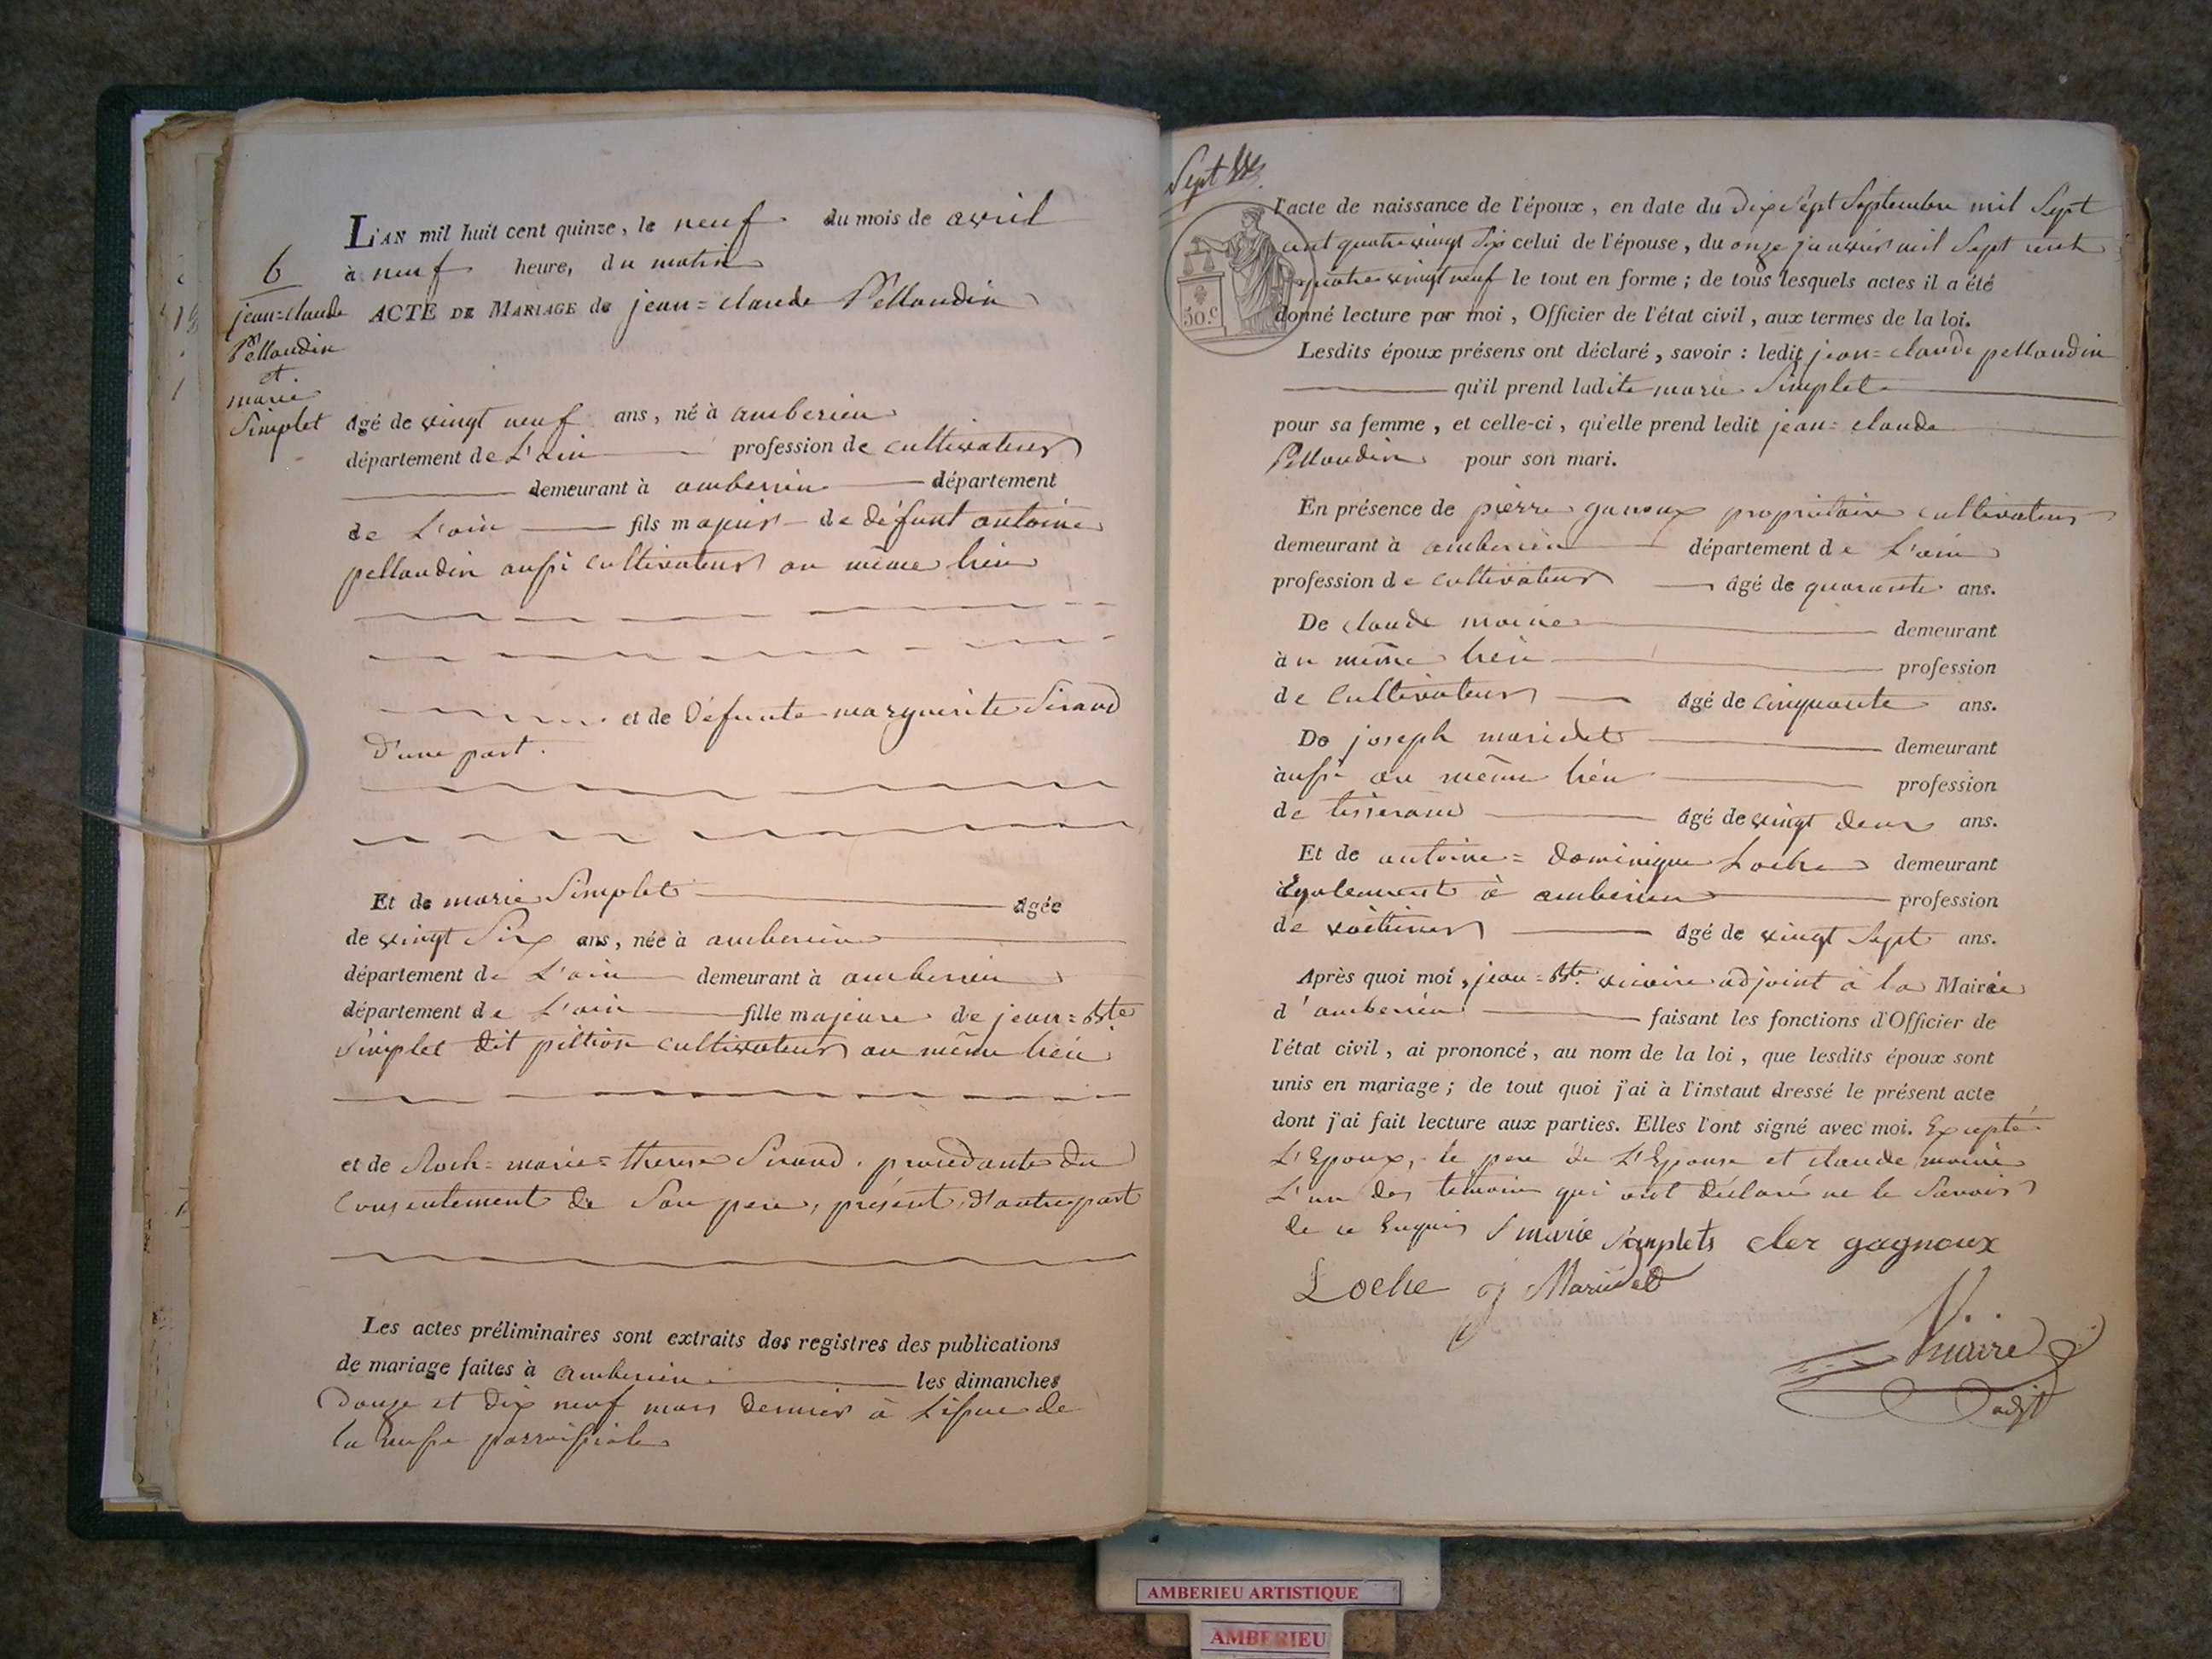 6
jean=claude
Pellaudin
et
marie
Simplet
L'AN mil huit cent quinze, le neuf du mois de avril
à neuf heure, du matin
ACTE DE MARIAGE de jean=claude Pellaudin
âgé de vingt neuf ans, né à amberieu
département de L'ain profession de cultivateur
demeurant à amberieu département
de L'ain fils majeur de défunt antoine
pellaudin aussi cultivateur au même lieu
et de Défunte marguerite Sirand
D'une part.
Et de marie Simplet âgée
de vingt Six ans, née à amberieu
département de L'ain demeurant à amberieu
département de L'ain fille majeure de jean=Bte
Simplet dit pittion cultivateur au même lieu
et de Roch=marie=therese Sirand. procedante du
Consentement de Son pere, présent, d'autre part
Les actes préliminaires sont extraits des registres des publications
de mariage faites à amberieu les dimanches
Douze et dix neuf mars dernier à L'issue de
la messe parroissiale
Sept
50.c
l'acte de naissance de l'époux, en date du dix Sept Septembre mil Sept
cent quatre vingt Six celui de l'épouse, du onze janvier mil Sept cent
quatre vingt neuf le tout en forme; de tous lesquels actes il a été
donné lecture par moi, Officier de l'état civil, aux termes de la loi.
Lesdits époux présens ont déclaré, savoir: ledit jean=claude pellaudin
qu'il prend ladite marie Simplet
pour sa femme, et celle-ci, qu'elle prend ledit jean=claude
Pellaudin pour son mari.
En présence de pierre ganoux propriétaire cultivateur
demeurant à amberieu département de L'ain
profession de cultivateur âgé de quarante ans.
De claude moine demeurant
au même lieu profession
de Cultivateur âgé de cinquante ans.
De joseph maridet demeurant
aussi au même lieu profession
de tisserand âgé de vingt deux ans.
Et de antoine=dominique Loche demeurant
également à amberieu profession
de voiturier âgé de vingt Sept ans.
Après quoi moi, jean=Bte. vicaire adjoint à la Mairie
d'amberieu faisant les fonctions d'Officier de
l'état civil, ai prononcé, au nom de la loi, que lesdits époux sont
unis en mariage; de tout quoi j'ai à l'instaut dressé le présent acte
dont j'ai fait lecture aux parties. Elles l'ont signé avec moi. Excepté
L'Epoux, le pere de L'Epouse et claude moine
L'un des temoins qui ont déclaré ne le Savoir
de ce Enquis marie simplets cler gagnoux
Loche j Maridet
Vicaire
adjt
AMBERIEU ARTISTIQUE
AMBERIEU